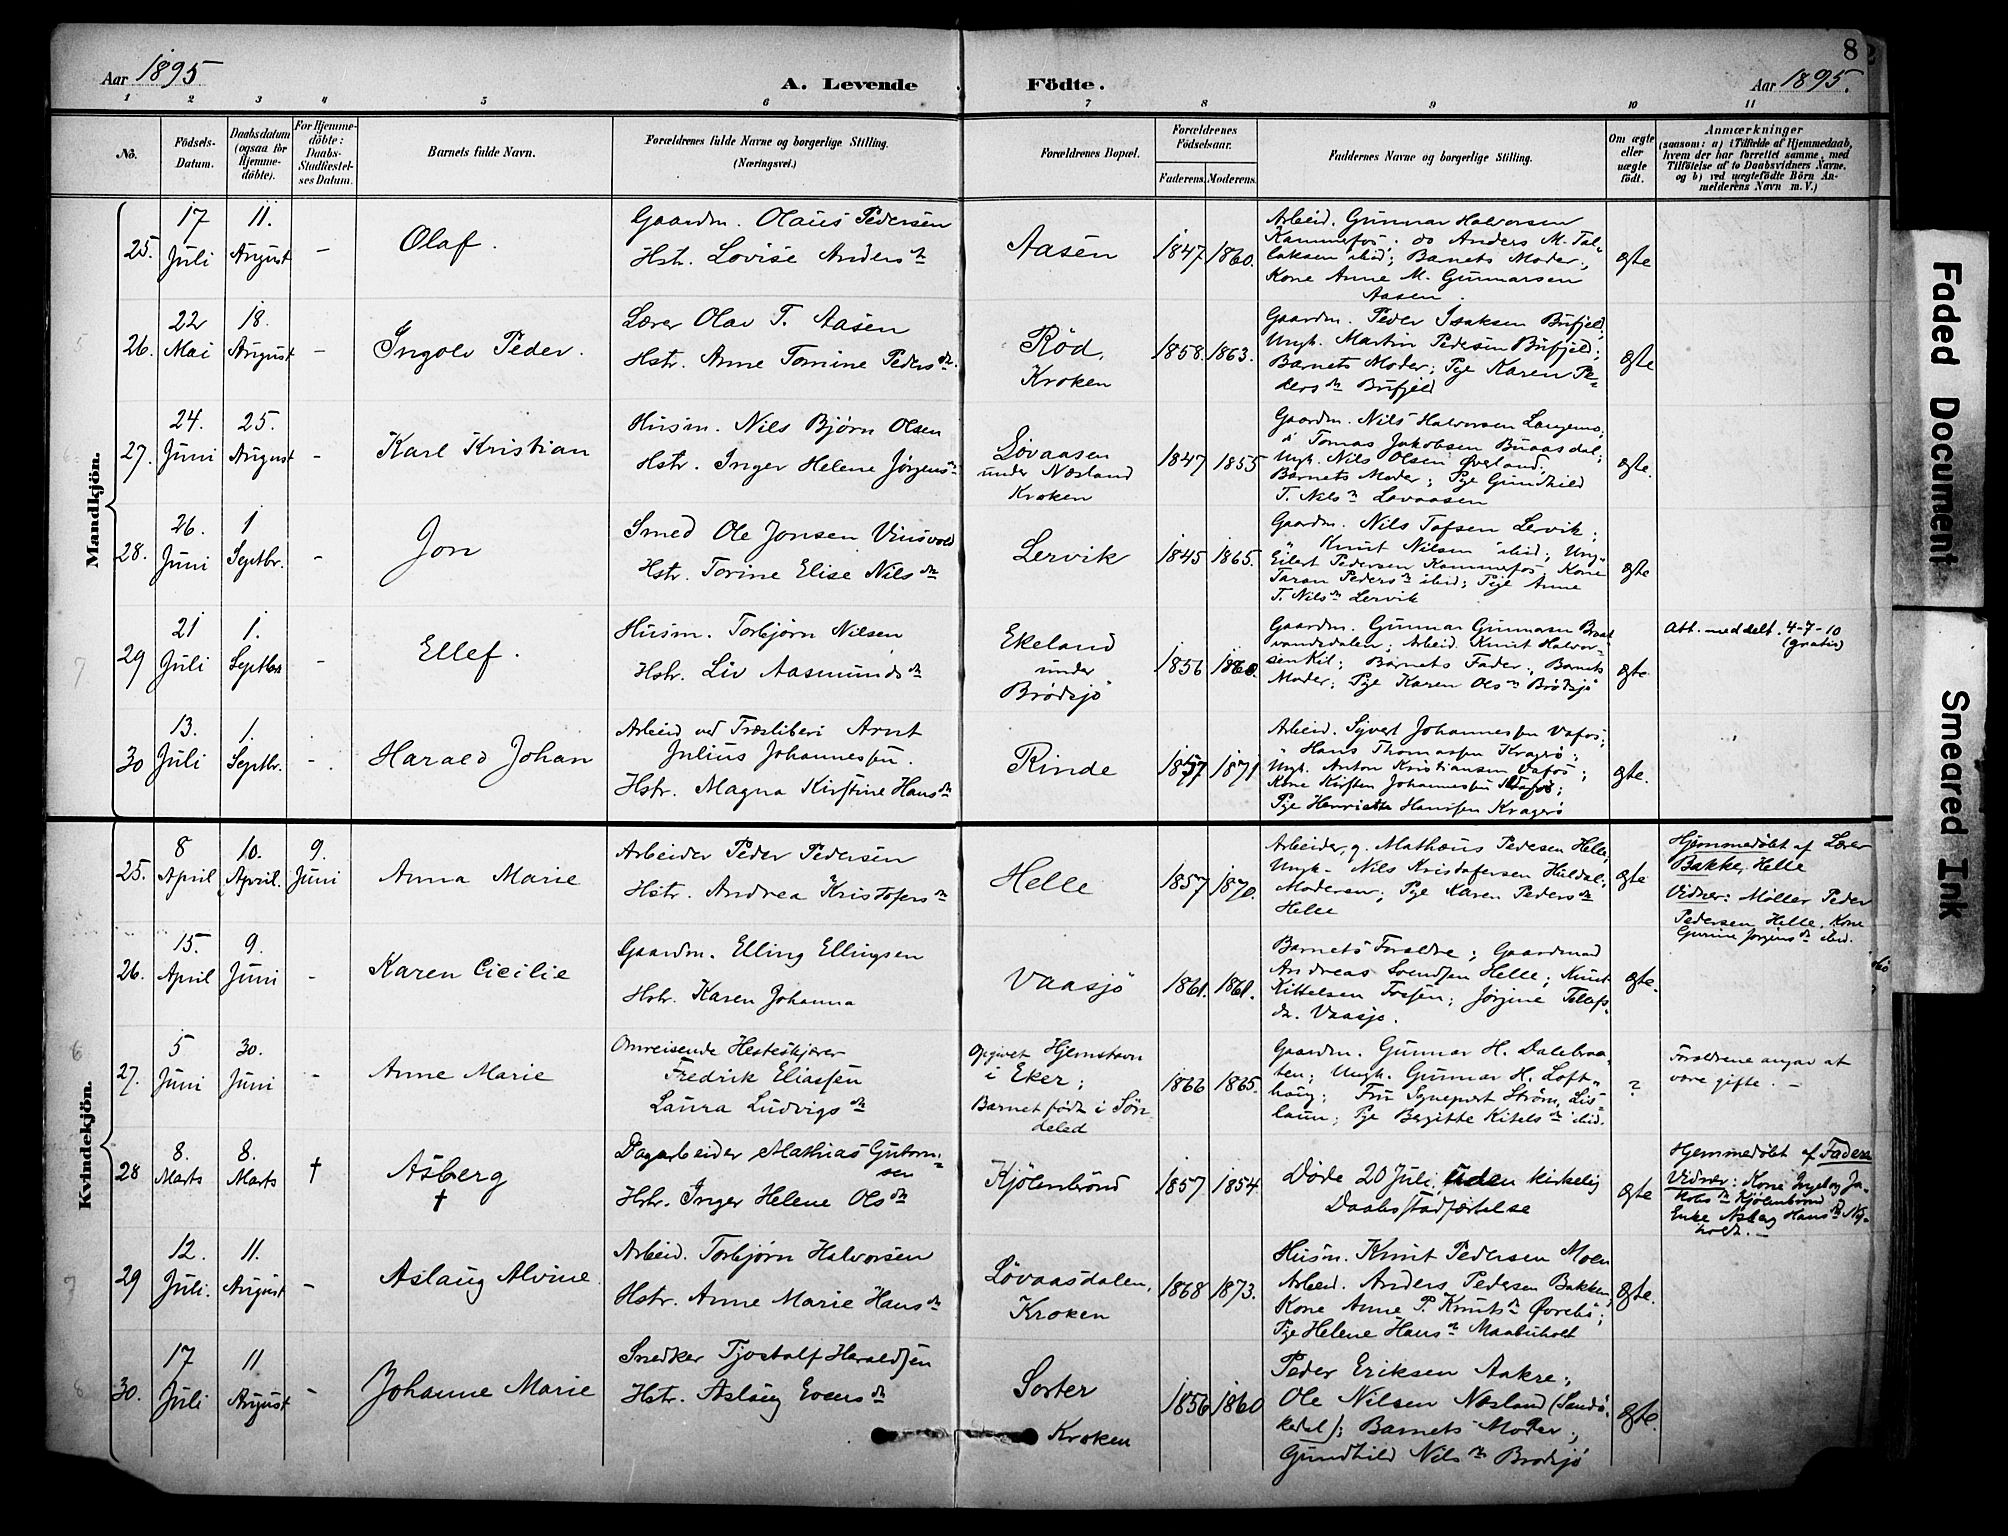 8
Aar 1895
A. Levende Födte.
Aar 1895.
1 2 3 4 5 6 7 8 9 10 11
No.
Födsels-Datum.
Daabsdatum (ogsaa for Hjemme-döbte).
For Hjemme-döbte: Daabs-Stadfæstel-ses Datum.
Barnets fulde Navn.
Forældrenes fulde Navne og borgerlige Stilling. (Næringsvei.)
Forældrenes Bopæl.
Forældrenes Födselsaar.
Faderens. Moderens.
Faddernes Navne og borgerlige Stilling.
Om ægte eller uægte födt.
Anmærkninger
(saasom: a) i Tilfælde af Hjemmedaab, hvem der har forrettet samme, med Tilföielse af to Daabsvidners Navne, og b) ved uægtefödte Börn An-melderens Navn m. V.)
Mandkjön.
25. 17 Juli 11. August –
Olaf.
Gaardm. Olaus Pedersen
Hstr. Lovise Andersdtr
Aasen
1847 1860.
Arbeid. Gunnar Halvorsen
Kammerfos; do Anders M. Tal-
laksen ibid; Barnets Moder;
Kone Anne M. Gunnarsen
Aasen.
Ægte
26. 22 Mai 18. August –
Ingolv Peder.
Lærer Olav T. Aasen
Hstr. Anne Tomine Pedersdtr.
Röd, Kroken
1858. 1863.
Gaardm. Peder Isaksen Bufjeld;
Ungk. Martin Pedersen Bufjeld;
Barnets Moder; Pge Karen Pe-
dersdtr Bufjeld
Ægte
27. 24. Juni 25. August –
Karl Kristian
Husm. Nils Bjørn Olsen
Hstr. Inger Helene Jørgensdtr
Løvaasen
under Næsland
Kroken
1847 1855
Gaardm. Nils Halvorsen Langemo;
" Tomas Jakobsen Buaasdal;
Ungk. Nils Olsen Øverland;
Barnets Moder; Pge Gundhild
T. Nilsdtr Løvaasen
Ægte.
28. 26. Juni 1 Septbr. –
Jon
Smed Ole Jonsen Vinsvold
Hstr. Torine Elise Nilsdtr
Lervik
1845 1865.
Gaardm. Nils Tofsen Lervik;
" Knut Nilsen ibid; Ung-
Eilert Pedersen Kammerfos; Kone
Taran Pedersdtr ibid; Pge Anne
T. Nilsdtr Lervik
Ægte
29 21 Juli 1. Septbr –
Ellef.
Husm. Torbjørn Nilsen
Hstr. Liv Aasmundsdtr
Ekeland
under
Brödsjö
1856 1860.
Gaardm. Gunnar Gunnarsen Braat
vandsdalen; Arbeid. Knut Halvor-
sen Kil; Barnets Fader; Barnets
Moder; Pge Karen Olsdtr Brödsjö
Ægte.
Att. meddelt. 4-7-10 (gratis)
30 13. Juli 1. Septbr. –
Harald Johan
Arbeid ved Træsliberi Arnt
Julius Johannessen.
Hstr. Magna Kirstine Hansdtr
Rinde
1857 1871
Arbeid. Syvert Johannessen Vafos;
" Hans Thomassen Kragerø;
Ungk. Anton Kristiansen Vafos;
Kone Kirsten Johannessen Vafos;
Pge Henriette Hanssen Kragerö
Ægte.
Kvindekjön.
25. 8 April 10. April. 9. Juni
Anna Marie
Arbeider Peder Pedersen
Hstr. Andrea Kristofersdtr
Helle
1857 1870.
Arbeider, g. Mathæus Pedersen Helle;
Ungk. Nils Kristofersen Huldal;
Moderen; Pge Karen Pedersdtr
Helle
Ægte
Hjemmedøbt af Lærer
Bakke, Helle
Vidner: Møller Peder
Pedersen Helle, Kone
Gurine Jørgensdtr ibid.
26. 15. April 9. Juni –
Karen Cicilie
Gaardm. Elling Ellingsen
Hstr. Karen Johanna
Vaasjö
1861. 1861.
Barnets Forældre; Gaardmand
Andreas Svendsen Helle; Knut
Kittelsen Fossen; Jörgine Tolefs-
dtr. Vaasjø.
Ægte.
27. 5 Juni 30. Juni –
Anne Marie
Omreisende Hesteskjærer
Fredrik Eliassen
Laura Ludvigsdtr
Opgivet Hjemstavn
i Eker;
Barnet födt i Søn-
deled
1866 1865.
Gaardm. Gunnar H. Dalebraa-
ten; Ungk. Gunnar H. Loft-
haug; Fru Synevert Strøm, Lis-
laun; Pge Bergitte Kitelsdtr ibid.
?
Forældrene angav at
være gifte. –
28 8. Marts 8. Marts †
Asberg †
Dagarbeider Mathias Gutorm-
sen
Hstr. Inger Helene Olsdtr
Kjölenbrönd
1857 1854.
Døde 20 Juli, uden kirkelig
Daabsstadfæstelse
Ægte
Hjemmedøbt af Faderen
Vidner: Kone Ingeborg Ja-
kobsdtr Kjølenbrønd
Enke Aslaug Hansdtr Ny-
holt. –
29 12. Juli. 11. August –
Aslaug Alvine.
Arbeid. Torbjørn Halvorsen
Hstr. Anne Marie Hansdtr
Løvaasdalen,
Kroken
1868 1873.
Husm. Knut Pedersen Moen
Arbeid. Anders Pedersen Bakken;
Kone Anne P. Knutsdtr Øvrebö;
Pge Helene Hansdtr Maabuholt
Ægte.
30. 17 Juli 11 August –
Johanne Marie
Snedker Tjostolf Heraldsen
Hstr. Aslaug Evensdtr
Sorter
Kroken
1856 1860
Peder Eriksen Aakre;
Ole Nilsen Næsland (Sandö-
kedal); Barnets Moder;
Gundhild Nilsdtr Brødsjö
Ægte.
Faded Document
Smeared Ink